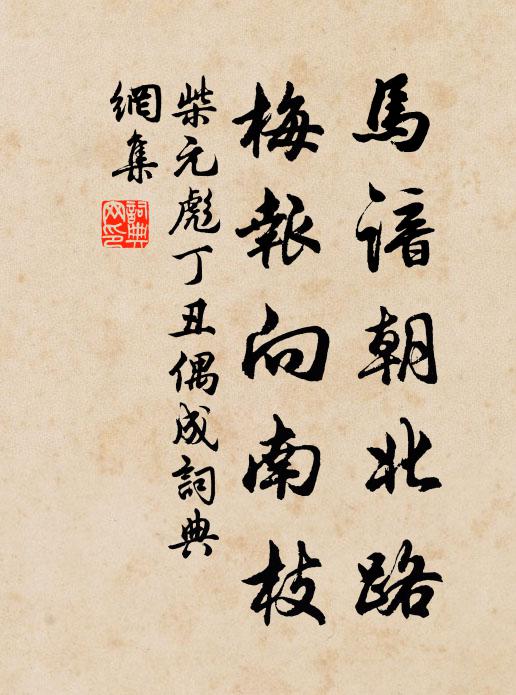 馬諳朝北路
梅報向南枝
柴元彪丁丑偶成詞典
網集
詞典
网印